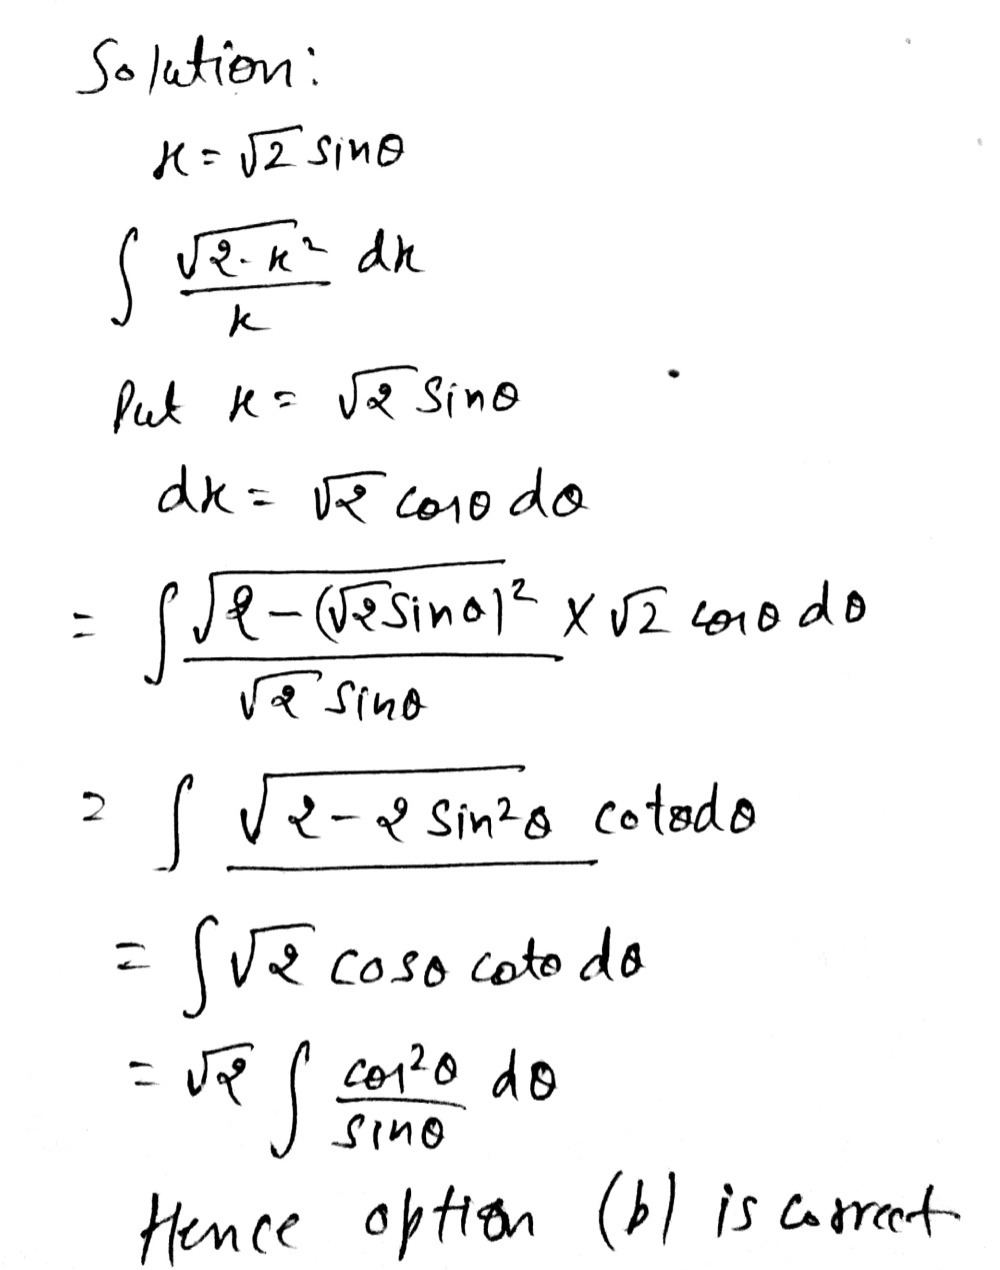 Solution:
x = √2 sinθ
∫ √2-x² / x dx
Put x = √2 Sinθ
dx = √2 cosθ dθ
= ∫ √2-(√2sinθ)² / √2 sinθ × √2 cosθ dθ
= ∫ √2-2 sin²θ cotθdθ
= ∫ √2 cosθ cotθ dθ
= √2 ∫ cos²θ / sinθ dθ
Hence option (b) is correct